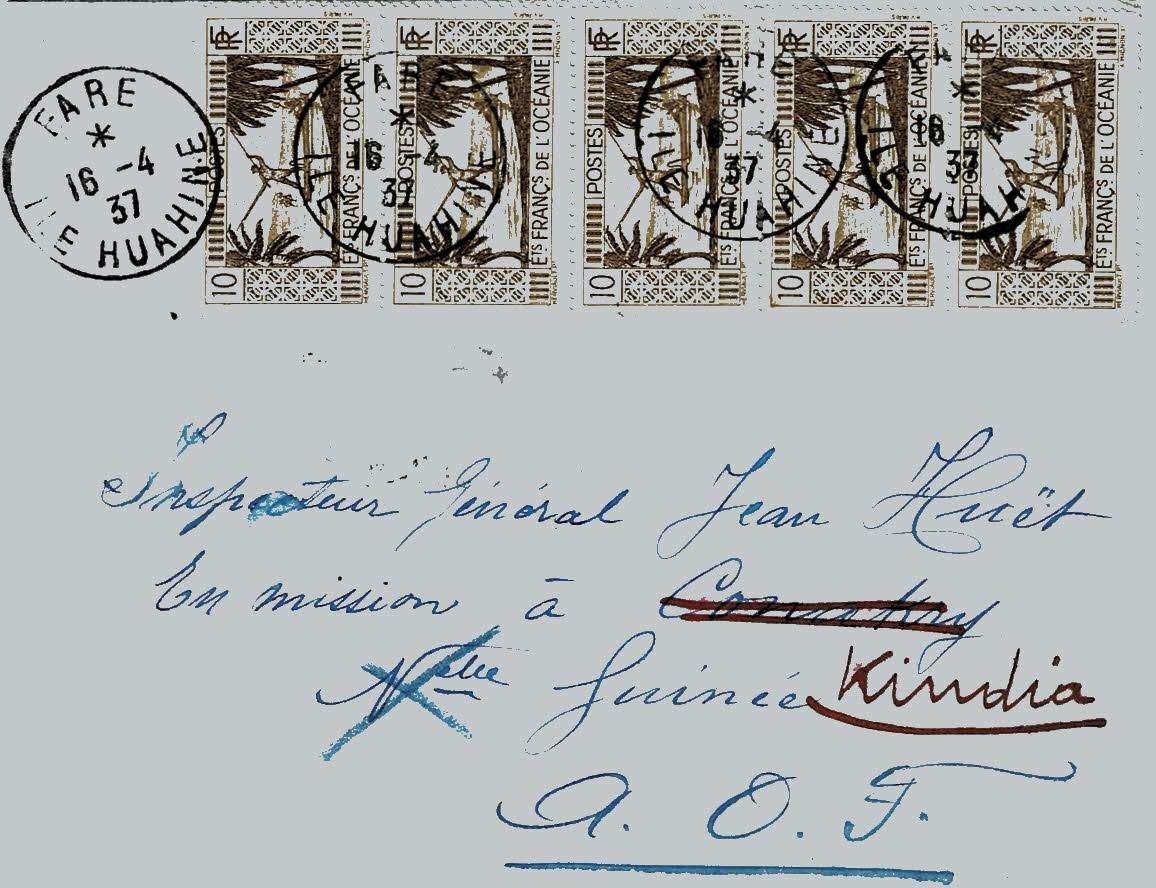 FARE
*
16 -4
37
ILE HUAHINE
RF POSTES 10 Eᵗˢ FRANÇˢ DE L'OCÉANIE
RF POSTES 10 Eᵗˢ FRANÇˢ DE L'OCÉANIE
RF POSTES 10 Eᵗˢ FRANÇˢ DE L'OCÉANIE
RF POSTES 10 Eᵗˢ FRANÇˢ DE L'OCÉANIE
RF POSTES 10 Eᵗˢ FRANÇˢ DE L'OCÉANIE
FARE * 16 -4 37 ILE HUAHINE
FARE * 16 -4 37 ILE HUAHINE
* 16 -4 37 ILE HUAH
Inspecteur Général Jean Huët
En mission à Conakry
Nelle Guinée Kindia
A. O. F.